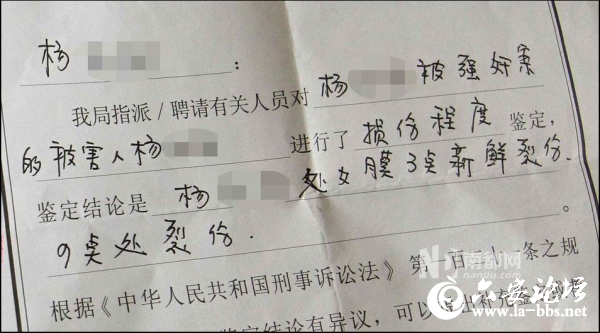 杨 :
我局指派/聘请有关人员对 杨 被强奸案
的被害人杨 进行了 损伤程度 鉴定,
鉴定结论是 杨 处女膜3点新鲜裂伤.
9点处裂伤. 。
根据《中华人民共和国刑事诉讼法》第 百 十 条之规
鉴定结论有异议，可以
N 南都网
nandu.com
六安论坛
www.la-bbs.net